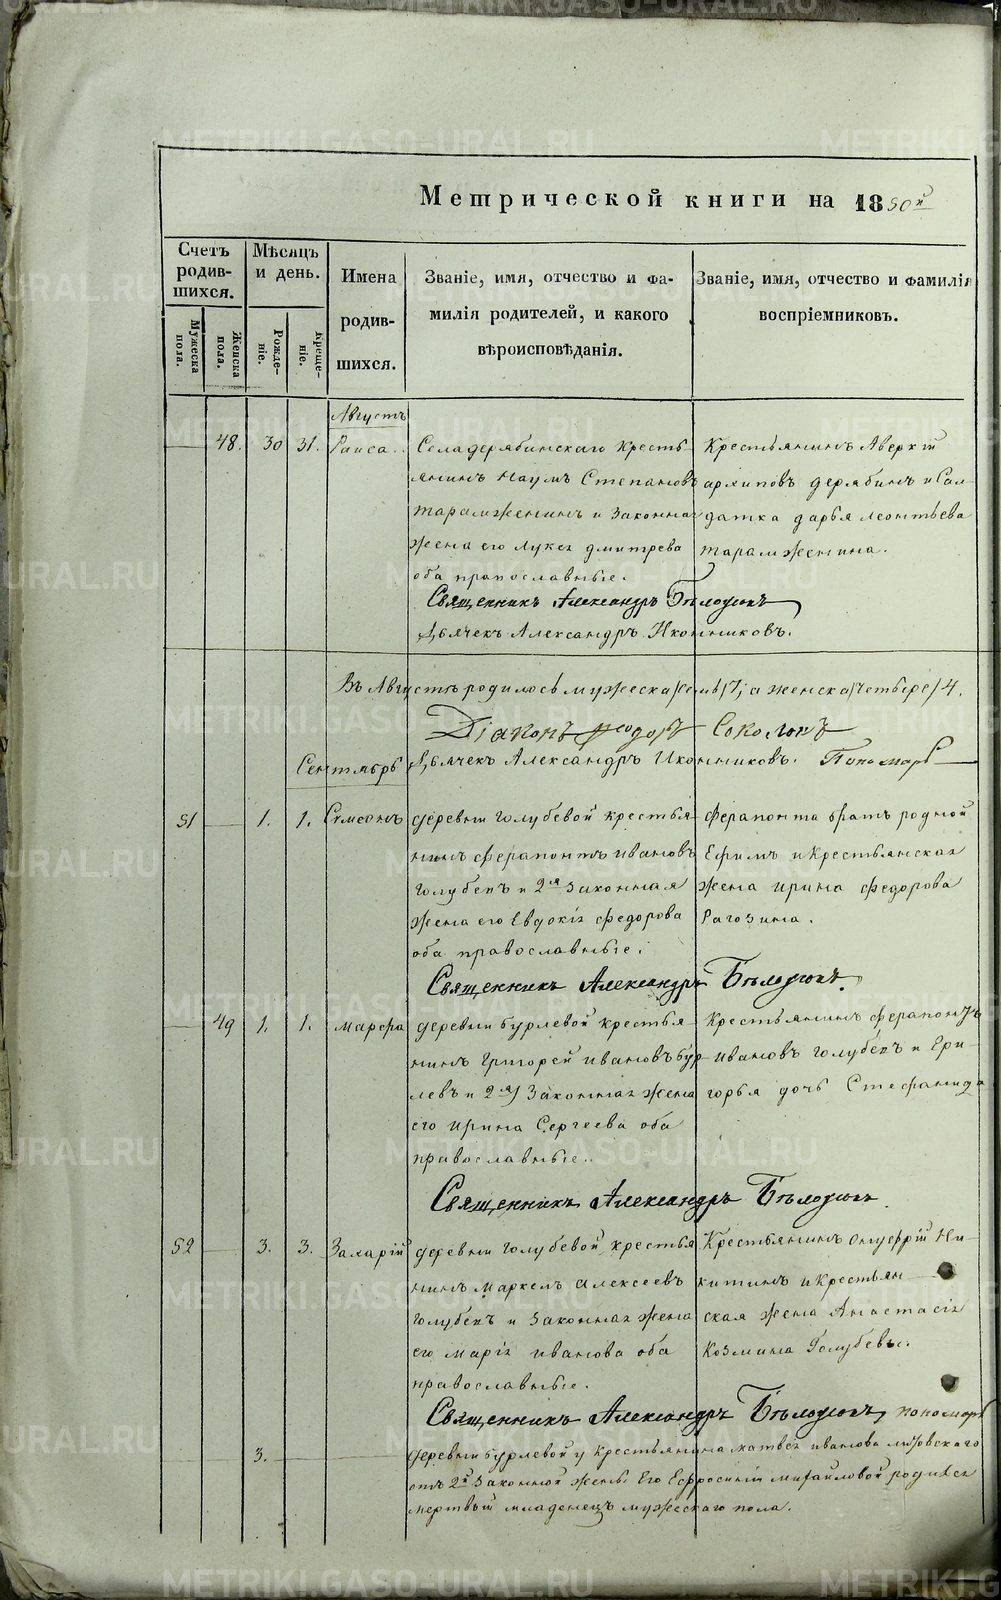 Метрической книги на 1850й
Счетъ родив-шихся.
Мѣсяцъ и день.
Имена родив-шихся.
Званіе, имя, отчество и фа-милія родителей, и какого вѣроисповѣданія.
Званіе, имя, отчество и фамилія воспріемниковъ.
Мужеска пола.
Женска пола.
Рожде-ніе.
Креще-ніе.
Августъ
48. 30 31. Раиса.
Села дерябинскаго кресть-
янинъ Наумъ Степановъ
тарамженинъ и Законная
жена его Лукея дмитрева
оба православные.
Крестьянинъ Аверкій
архиповъ дерябинъ и Сол-
датка дарья леонтьева
тарамженина.
Священникъ Александръ Бѣлоусовъ
Дьячекъ Александръ Иконниковъ.
Въ Августѣ родилось мужеска /семь/ 7, а женска /четыре/ 4.
Діаконъ Феодоръ Соколовъ
Сентябрь Дьячекъ Александръ Иконниковъ. Пономарь
51 1. 1. Симеонъ
деревни голубевой крестья-
нинъ ферапонтъ ивановъ
голубевъ и 2я Законная
жена его Евдокія федорова
оба православные.
ферапонта братъ родной
Ефимъ и крестьянская
жена ирина федорова
Рагозина.
Священникъ Александръ Бѣлоусовъ.
49 1. 1. марфа
деревни бурлевой крестья-
нинъ григорей ивановъ бур-
левъ и 2я Законная жена
его ирина Сергеева оба
православные.
Крестьянинъ ферапонтъ
ивановъ голубевъ и Гри-
горья дочь Стефанида
Священникъ Александръ Бѣлоусовъ
52 3. 3. Захарій
деревни голубевой крестья-
нинъ маркелъ алексеевъ
голубевъ и Законная жена
его марія иванова оба
православные.
Крестьянинъ онуфрій Ни-
китинъ и крестьян-
ская жена Анастасія
Козмина Голубевы.
Священникъ Александръ Бѣлоусовъ, пономарь
3. деревни бурлевой у крестьянина матвея иванова
отъ 2й Законной жены Его Ефросиніи михайловой родился
мертвый младенецъ мужескаго пола.
METRIKI.GASO-URAL.RU